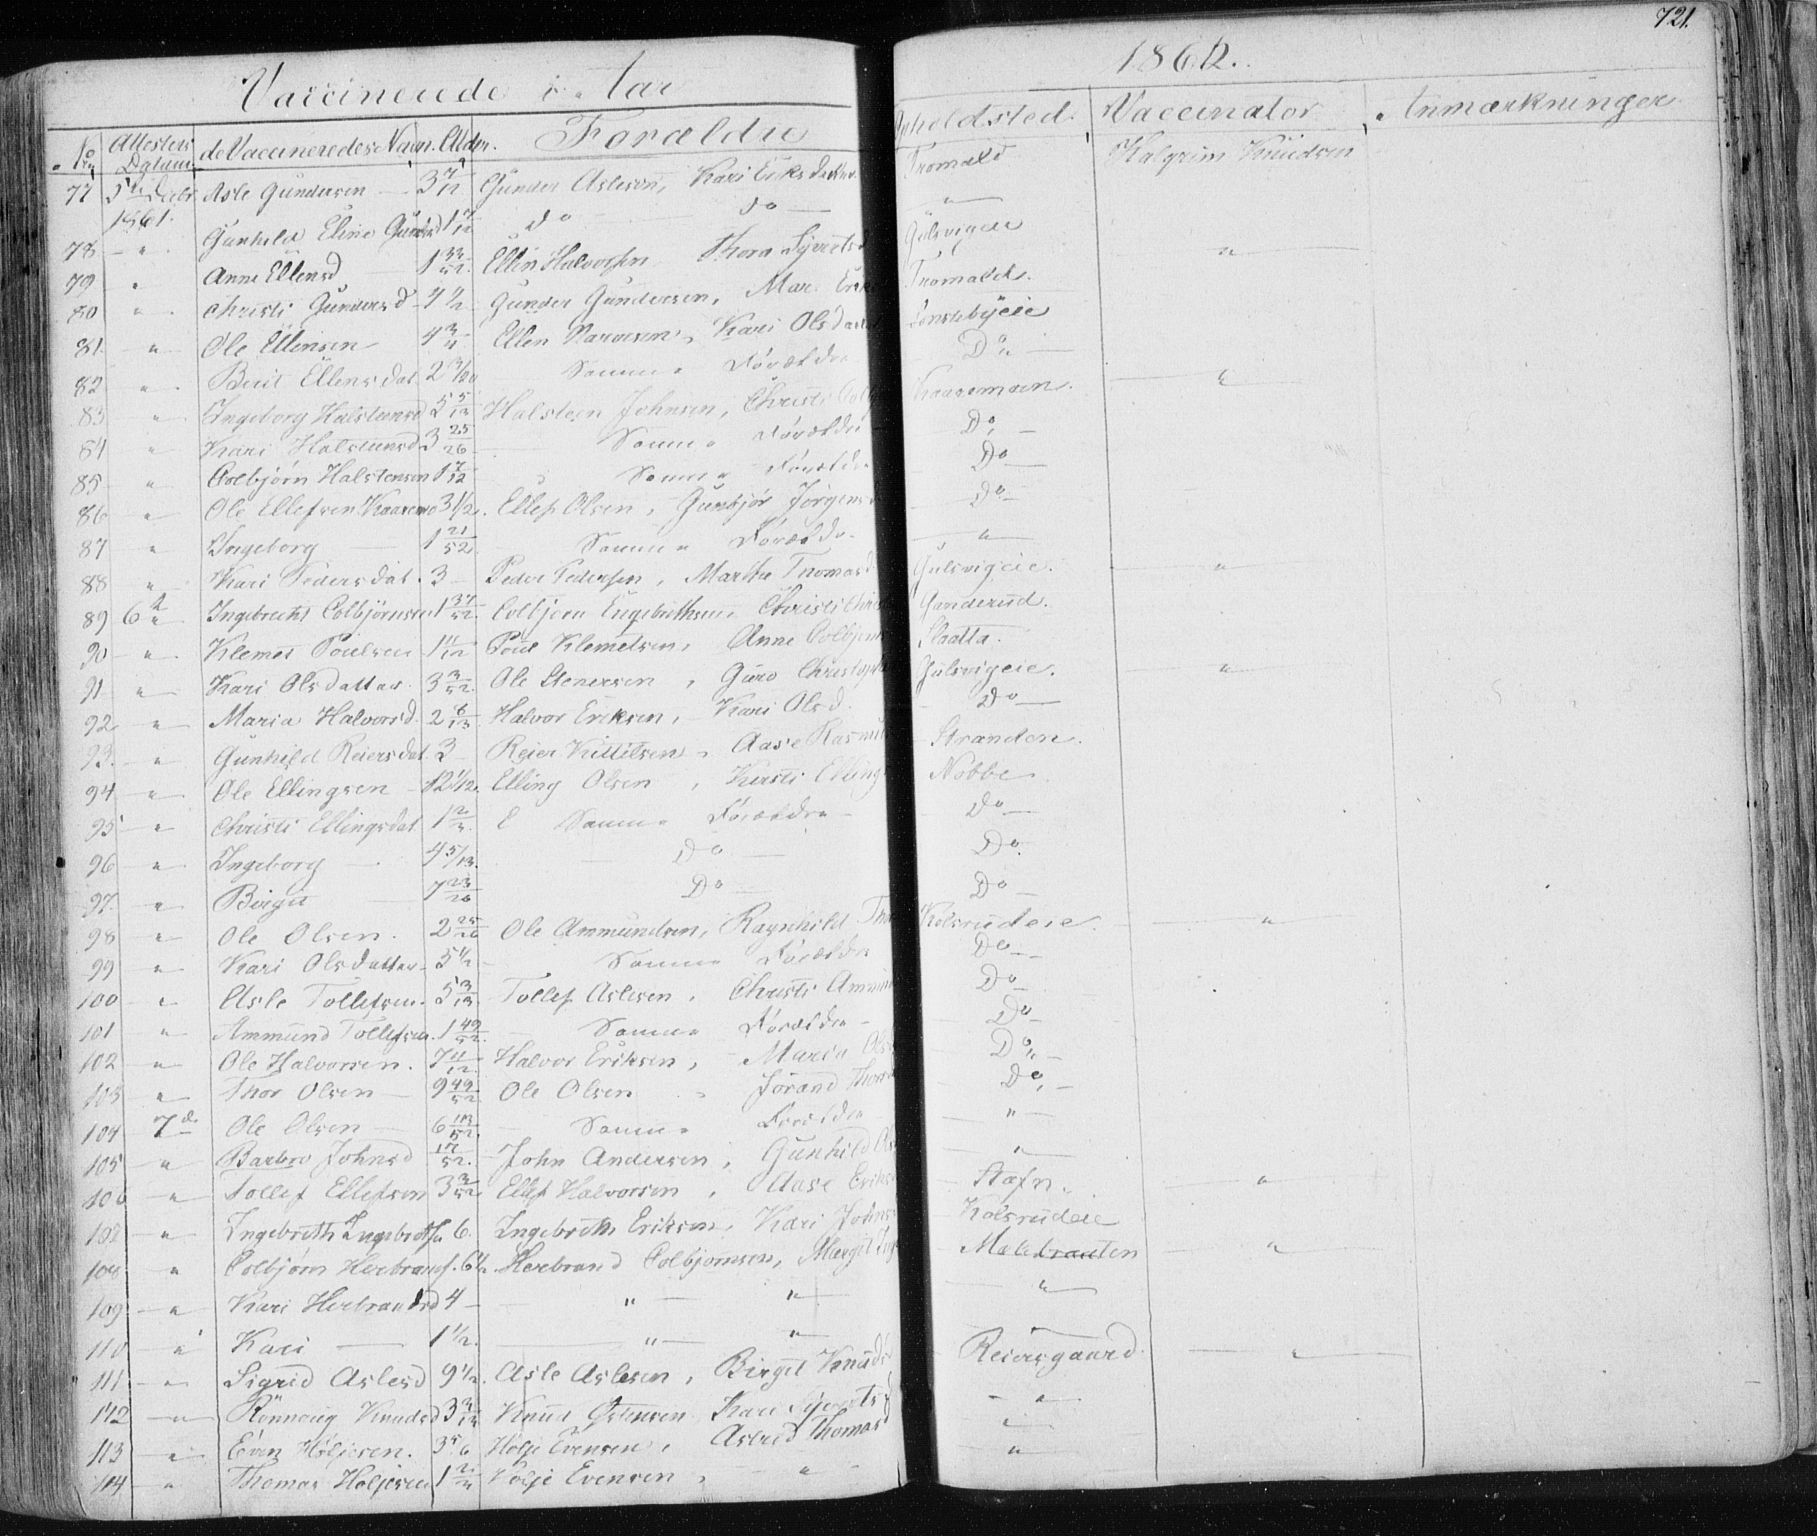 721.
Vaccinerede i Aar 1862.
No Attesters Datum de Vaccineredes Navn. Alder. Forældre Opholdsted. Vaccinator Anmærkninger
77 5te Decbr 1861. Asle Gundersen 3 7/12 Gunder Aslesen, Kari Eriksdatter Tromald Halgrim Knudsen
78 " Gunhild Eline Gundersd 1 7/12 do do "
79 " Anne Ellensd 1 32/52. Ellen Halvorsen Thora Sjvertsd Gulsvigeie "
80 " Christi Gundersd 7 1/2 Gunder Gundersen, Mar. Tromald
81. " Ole Ellensen 4 3/4 Ellen Narvesen, Kari Olsdatter
82 " Berit Ellensdat. 2 Samme Forældre Do
83 " Ingeborg Halsteensd 5 5/13 Halsteen Johnsen, Christi Kaasemoen. "
84 " Kari Halsteensd 3 25/26 Samme Forældre Do
85 " Colbjørn Halstensen 1 7/12 Samme Forældre Do
86 " Ole Ellefsen Kaasemo 3 1/2. Ellef Olsen, Gunbjør Jørgens Do
87 " Ingeborg 1 21/52 Samme Forældre "
88 " Kari Pedersdat. 3 Peder Pedersen, Marthe Thomasd Gulsvigeie. "
89 6te Ingebrecht Colbjørnsen 1 37/52. Colbjørn Engebrethsen, Christi Sanderud.
90 " Klemet Poulsen 1 11/12 Poul Klemetsen, Anne Colbjørns Skatta.
91 " Kari Olsdatter 3 3/52. Ole Stenersen, Guro Christoph Gulsvigeie. "
92 " Maria Halvorsd. 2 6/13. Halvor Eriksen, Kari Olsd. Do
93. " Gunhild Reiersdat. 3 Reier Kittilsen, Aase Rasmus Stranden.
94 " Ole Ellingsen 12 1/2. Elling Olsen, Kersti Ellings Nobbe
95 " Christi Ellingsdat 1 Samme Forældre do
96 " Ingeborg 4 5/13. Do Do.
97. " Birgit 7 23/26 Do Do
98 " Ole Olsen. 2 25/26 Ole Ammundsen, Ragnhild Kolsrudeie. "
99 " Kari Olsdatter 5 1/2 Samme Forældre Do
100 " Asle Tollefsen. 5 3/13. Tollef Aslesen, Christi Ammun Do
101 " Ammund Tollefsen 1 49/52. Samme Forældre Do
102 " Ole Halvorsen. 7 11/12. Halvor Eriksen, Maria Ols Do
103 " Thor Olsen 9 49/52 Ole Olsen, Jørand Thors Do
104 7de Ole Olsen 6 Samme Forældre "
105 " Barbro Johnsd 17/52. John Andersen, Gunhild "
106 " Tollef Ellefsen 3 3/52 Ellef Halvorsen, Aase Eriks Stafn. "
107 " Ingebreth Ingebrethsen 6. Ingebreth Eriksen, Kari Johns Kolsrudeie
108 " Colbjørn Herbrands. 6 1/2. Herbrand Colbjørnsen, Margit "
109 " Kari Herbrandsd 4 " " "
110 " Kari 1 1/2. " "
111 " Sigrid Aslesd 9 1/2. Asle Aslesen, Birgit Knuds Reiersgaard. "
112 " Rønnoug Knudsd 3 3/13 Knud Østensen Kari Sjvertsd "
113 " Even Høljesen. 3 5/6 Hølje Evensen, Astrid Thomasd "
114 " Thomas Høljesen 1 Hølje Evensen, " "